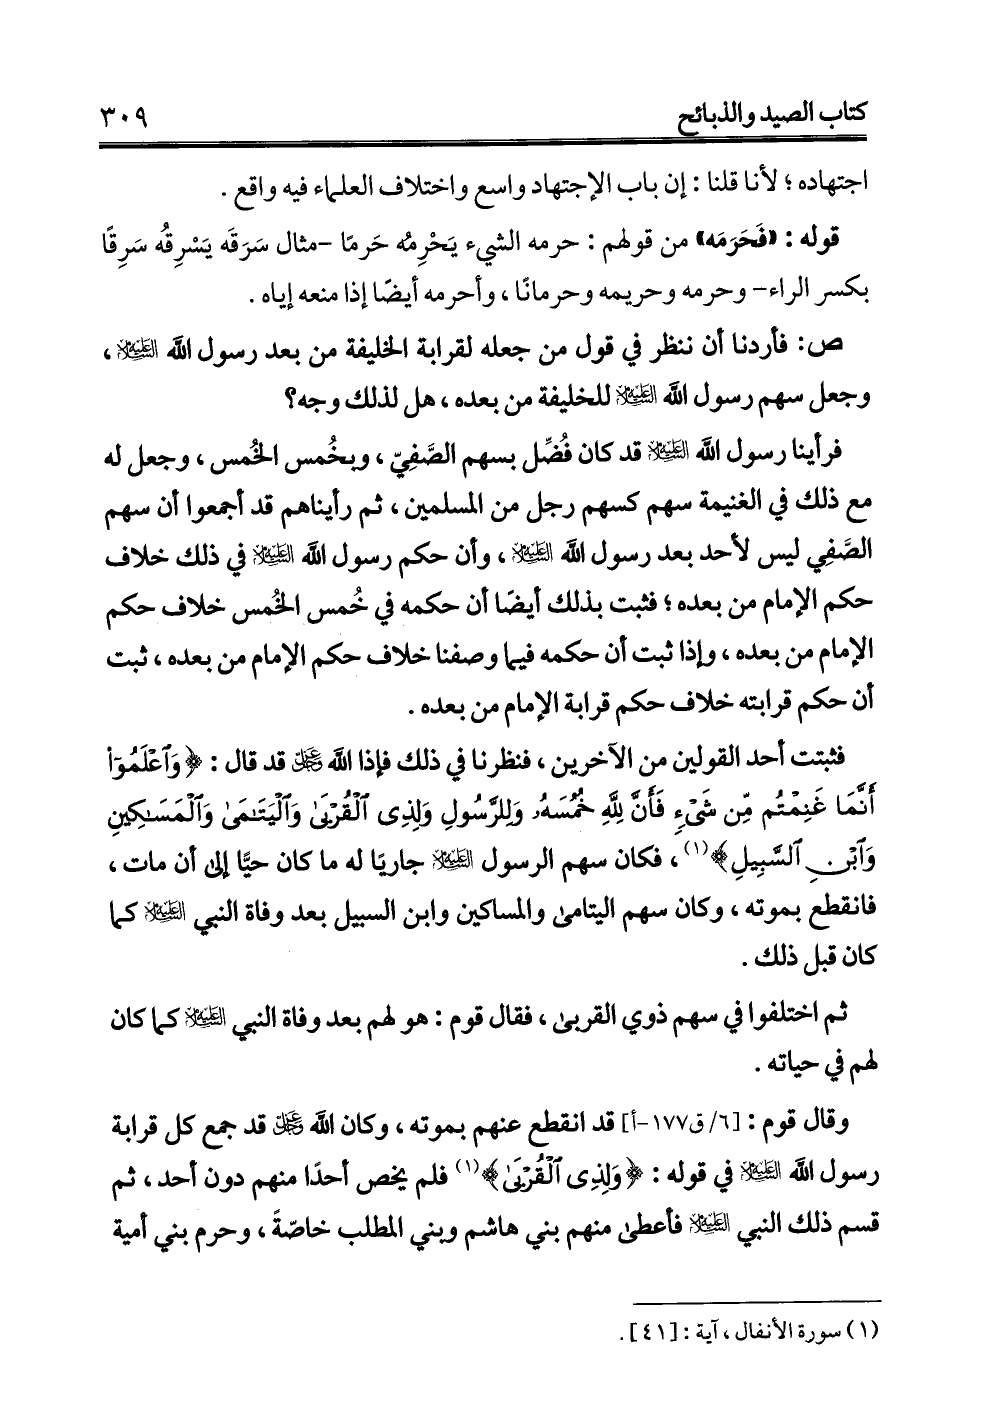 كتاب الصيد والذبائح ٣٠٩
اجتهاده ؛ لأنا قلنا : إن باب الإجتهاد واسع واختلاف العلماء فيه واقع .
قوله : «فَحَرَمَه» من قولهم : حرمه الشيء يَحْرِمُه حَرِمًا -مثال سَرَقَه يَسْرِقُه سَرِقًا
بكسر الراء- وحرمه وحريمه وحرمانًا ، وأحرمه أيضًا إذا منعه إياه .
ص: فأردنا أن ننظر في قول من جعله لقرابة الخليفة من بعد رسول الله العليه السلام ،
وجعل سهم رسول الله عليه السلام للخليفة من بعده ، هل لذلك وجه؟
فرأينا رسول الله عليه السلام قد كان فُضِّل بسهم الصَّفِيّ ، وبخُمس الخُمس ، وجعل له
مع ذلك في الغنيمة سهم كسهم رجل من المسلمين ، ثم رأيناهم قد أجمعوا أن سهم
الصَّفِي ليس لأحد بعد رسول الله عليه السلام ، وأن حكم رسول الله عليه السلام في ذلك خلاف
حكم الإمام من بعده ؛ فثبت بذلك أيضًا أن حكمه في خُمس الخُمس خلاف حكم
الإمام من بعده ، وإذا ثبت أن حكمه فيما وصفنا خلاف حكم الإمام من بعده ، ثبت
أن حكم قرابته خلاف حكم قرابة الإمام من بعده .
فثبتت أحد القولين من الآخرين ، فنظرنا في ذلك فإذا الله عز وجل قد قال : ﴿وَٱعْلَمُوٓا۟
أَنَّمَا غَنِمْتُم مِّن شَىْءٍ فَأَنَّ لِلَّهِ خُمُسَهُۥ وَلِلرَّسُولِ وَلِذِى ٱلْقُرْبَىٰ وَٱلْيَتَـٰمَىٰ وَٱلْمَسَـٰكِينِ
وَٱبْنِ ٱلسَّبِيلِ﴾(١) ، فكان سهم الرسول عليه السلام جاريًا له ما كان حيًّا إلى أن مات ،
فانقطع بموته ، وكان سهم اليتامى والمساكين وابن السبيل بعد وفاة النبي عليه السلام كما
كان قبل ذلك .
ثم اختلفوا في سهم ذوي القربى ، فقال قوم : هو لهم بعد وفاة النبي عليه السلام كما كان
لهم في حياته .
وقال قوم : [٦/ ق١٧٧-أ] قد انقطع عنهم بموته ، وكان الله عز وجل قد جمع كل قرابة
رسول الله عليه السلام في قوله : ﴿وَلِذِى ٱلْقُرْبَىٰ﴾(١) فلم يخص أحدًا منهم دون أحد ، ثم
قسم ذلك النبي عليه السلام فأعطى منهم بني هاشم وبني المطلب خاصّةً ، وحرم بني أمية
(١) سورة الأنفال ، آية : [٤١].